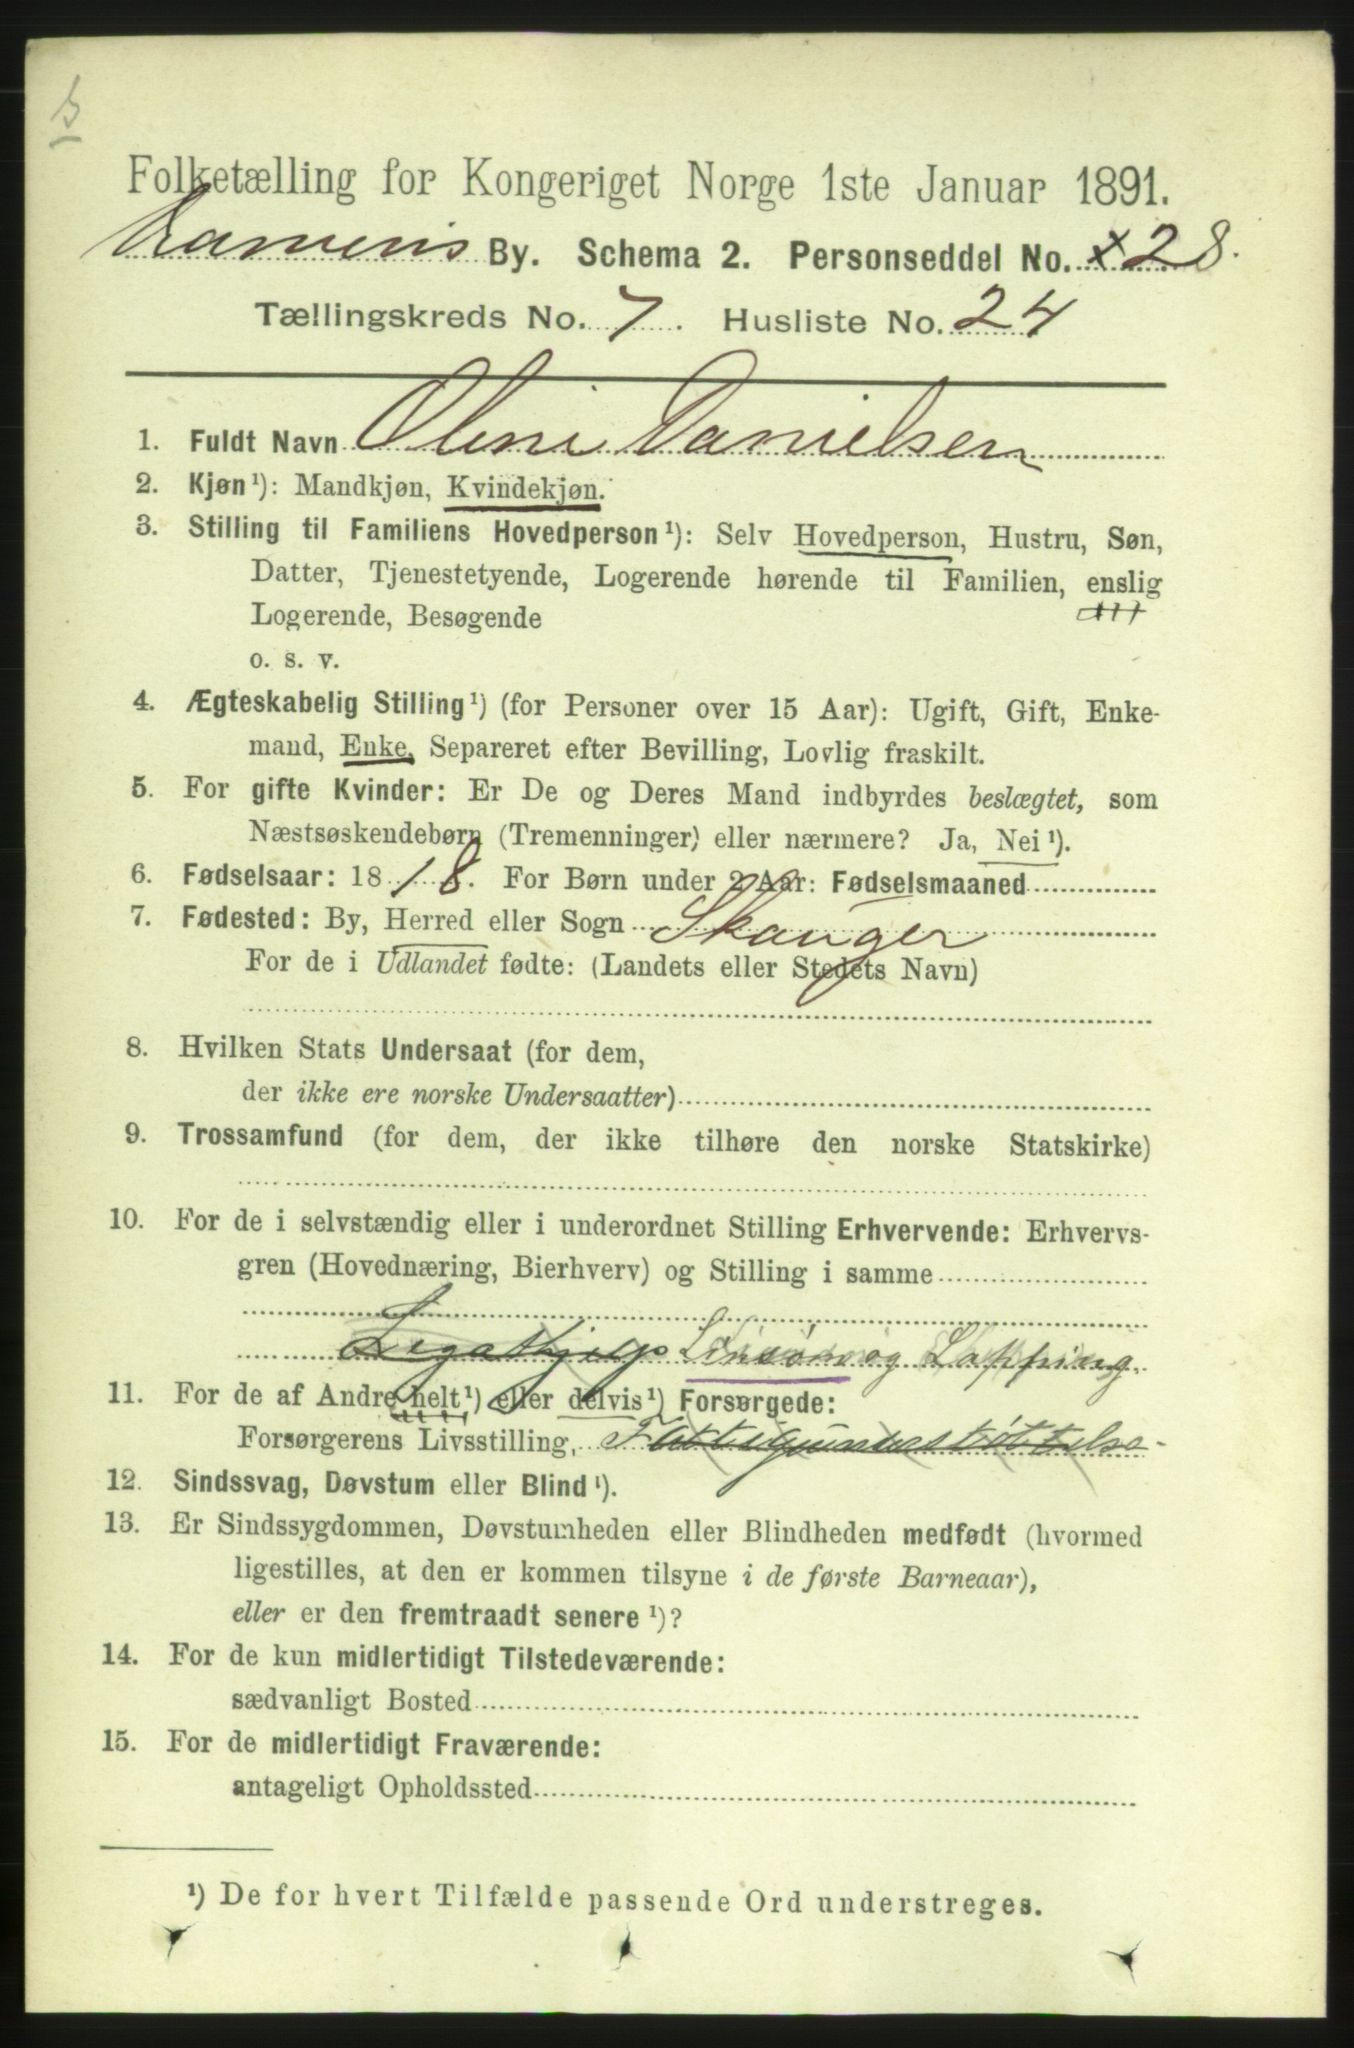 Folketælling for Kongeriget Norge 1ste Januar 1891.
By. Schema 2. Personseddel No. 28.
Tællingskreds No. 7. Husliste No. 24
1. Fuldt Navn Oline Danielsen
2. Kjøn¹): Mandkjøn, Kvindekjøn.
3. Stilling til Familiens Hovedperson¹): Selv Hovedperson, Hustru, Søn,
Datter, Tjenestetyende, Logerende hørende til Familien, enslig
Logerende, Besøgende
o. s. v.
4. Ægteskabelig Stilling¹) (for Personer over 15 Aar): Ugift, Gift, Enke-
mand, Enke, Separeret efter Bevilling, Lovlig fraskilt.
5. For gifte Kvinder: Er De og Deres Mand indbyrdes beslægtet, som
Næstsøskendebørn (Tremenninger) eller nærmere? Ja, Nei¹).
6. Fødselsaar: 1818. For Børn under 2 Aar: Fødselsmaaned
7. Fødested: By, Herred eller Sogn Skauger
For de i Udlandet fødte: (Landets eller Stedets Navn)
8. Hvilken Stats Undersaat (for dem,
der ikke ere norske Undersaatter)
9. Trossamfund (for dem, der ikke tilhøre den norske Statskirke)
10. For de i selvstændig eller i underordnet Stilling Erhvervende: Erhvervs-
gren (Hovednæring, Bierhverv) og Stilling i samme
Linsøm og Lapping.
11. For de af Andre helt¹) eller delvis¹) Forsørgede:
Forsørgerens Livsstilling, Fattigunderstøttelse
12. Sindssvag, Døvstum eller Blind¹).
13. Er Sindssygdommen, Døvstumheden eller Blindheden medfødt (hvormed
ligestilles, at den er kommen tilsyne i de første Barneaar),
eller er den fremtraadt senere¹)?
14. For de kun midlertidigt Tilstedeværende:
sædvanligt Bosted
15. For de midlertidigt Fraværende:
antageligt Opholdssted
¹) De for hvert Tilfælde passende Ord understreges.